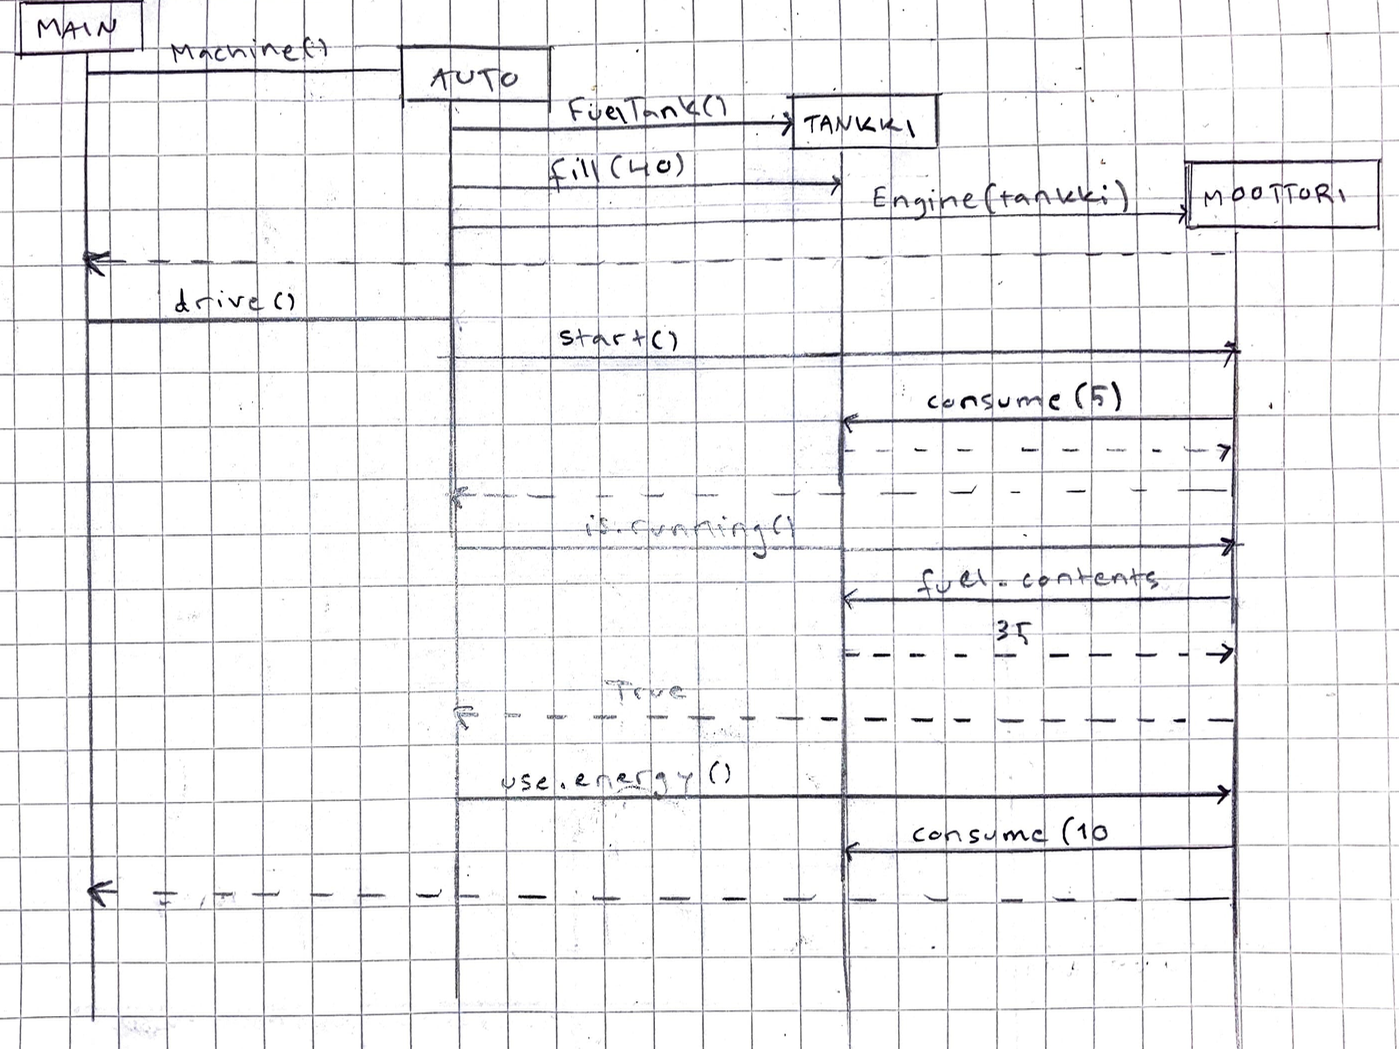 MAIN
Machine()
AUTO
FuelTank()
TANKKI
fill(40)
Engine(tankki)
MOOTTORI
drive()
start()
consume(5)
is.running()
fuel.contents
35
True
use.energy()
consume(10